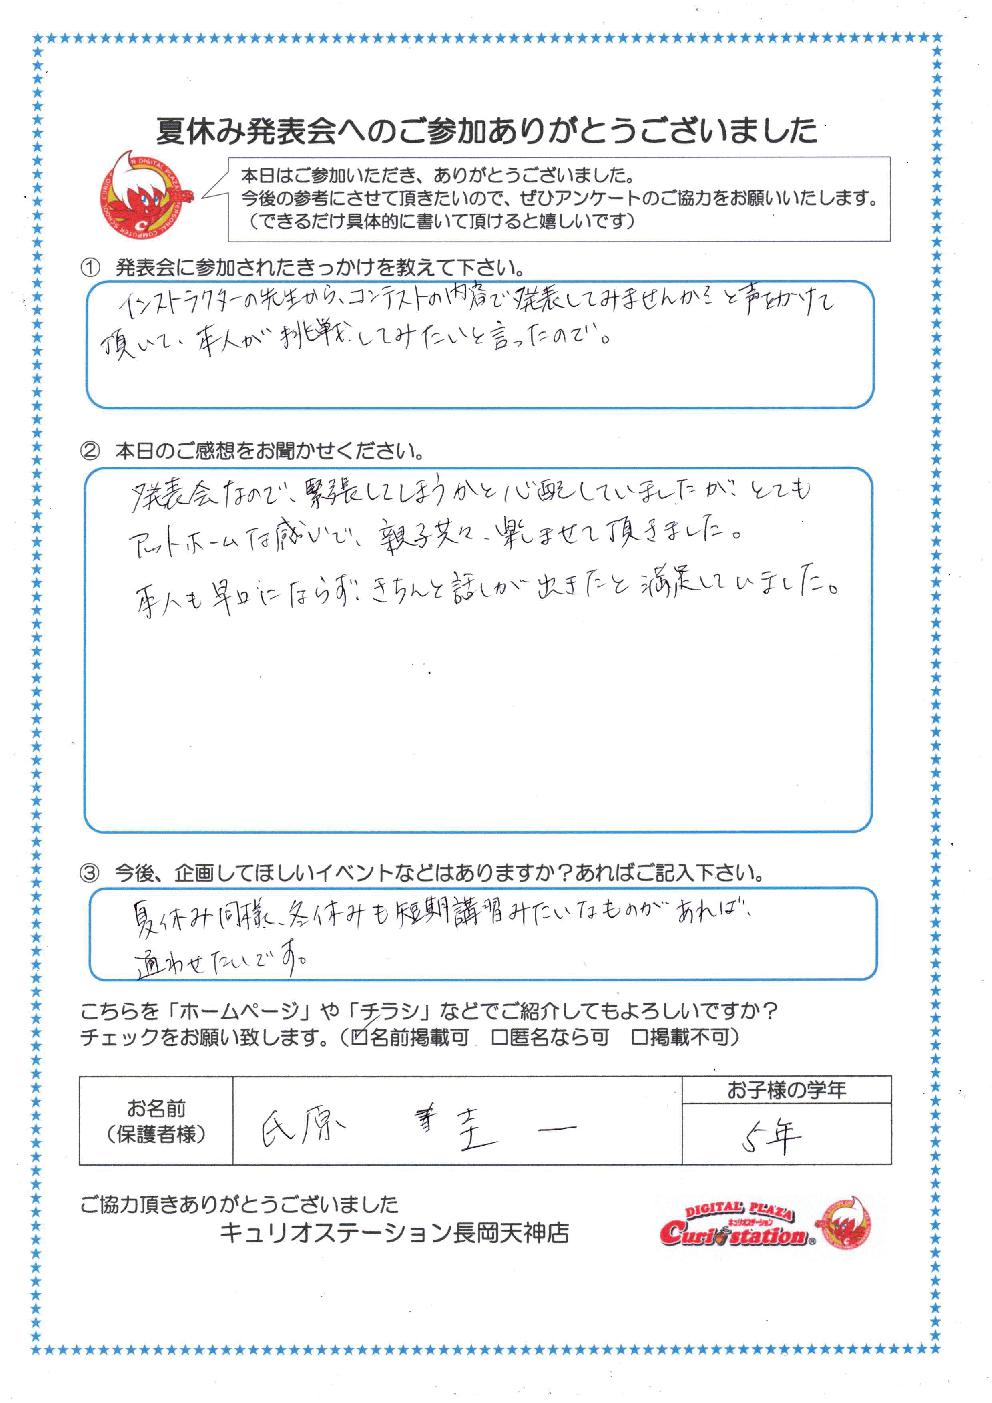 夏休み発表会へのご参加ありがとうございました
本日はご参加いただき、ありがとうございました。
今後の参考にさせて頂きたいので、ぜひアンケートのご協力をお願いいたします。
（できるだけ具体的に書いて頂けると嬉しいです）
① 発表会に参加されたきっかけを教えて下さい。
インストラクターの先生から、コンテストの内容で発表してみませんか？と声をかけて
頂いて、本人が挑戦してみたいと言ったので。
② 本日のご感想をお聞かせください。
発表会なので、緊張してしまうかと心配していましたが、とても
アットホームな感じで、親子共々、楽しませて頂きました。
本人も早口にならず、きちんと話しが出きたと満足していました。
③ 今後、企画してほしいイベントなどはありますか？あればご記入下さい。
夏休み同様、冬休みも短期講習みたいなものがあれば、
通わせたいです。
こちらを「ホームページ」や「チラシ」などでご紹介してもよろしいですか？
チェックをお願い致します。（☑名前掲載可 □匿名なら可 □掲載不可）
お名前
（保護者様）
氏原 圭一
お子様の学年
5年
ご協力頂きありがとうございました
キュリオステーション長岡天神店
DIGITAL PLAZA
キュリオステーション
Curiostation®